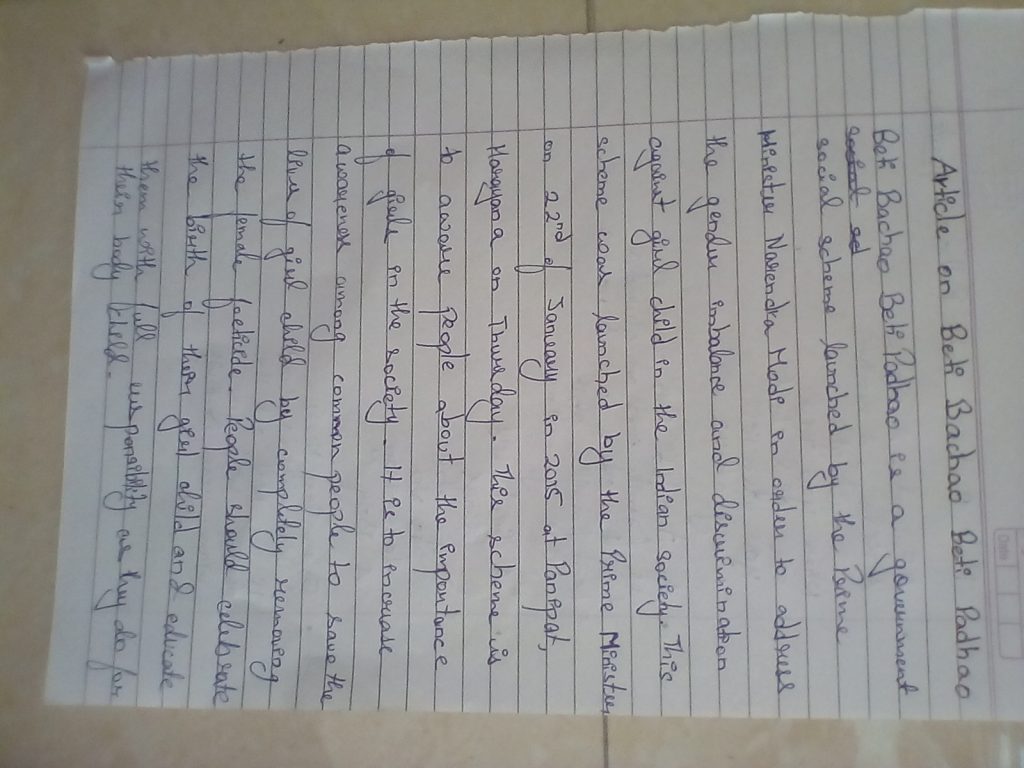 Date
Article on Beti Bachao Beti Padhao
Beti Bachao Beti Padhao is a government
social scheme lanched by the Prime
Minister Narendra Modi in order to address
the gender imbalance and discrimination
against girl child in the Indian society. This
scheme was launched by the Prime Minister
on 22nd of January in 2015 at Panipat,
Haryana on Thursday. This scheme is
to aware people about the importance
of girls in the society. It is to increase
awareness among common people to save the
lives of girl child by completely removing
the female foeticide. People should celebrate
the birth of their girl child and educate
them with full responsibility as they do for
their boy child.